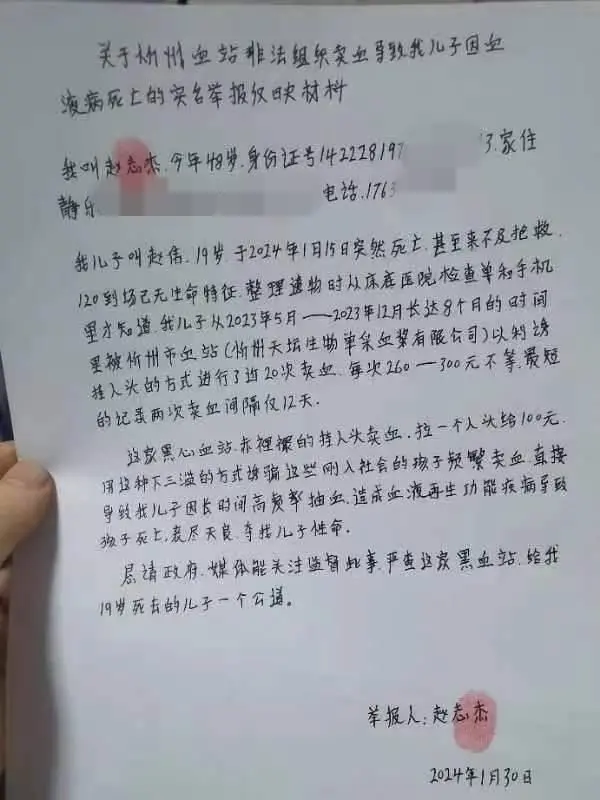 关于忻州血站非法组织卖血导致我儿子因血
液病死亡的实名举报仅映材料
我叫赵志杰.今年48岁.身份证号142228197 3.家住
静乐 电话.1763
我儿子叫赵伟.19岁.于2024年1月15日突然死亡.甚至来不及抢救.
120到场已无生命特征.整理遗物时从床底医院检查单和手机
里才知道.我儿子从2023年5月——2023年12月长达8个月的时间
里被忻州市血站(忻州天坛生物单采血浆有限公司)以利诱
挂人头的方式进行了近20次卖血.每次260—300元不等.最短
的记录两次卖血间隔仅12天.
这家黑心血站.赤裸裸的挂人头卖血.拉一个人头给100元.
用这种下三滥的方式诱骗这些刚入社会的孩子频繁卖血.直接
导致我儿子因长时间高频率抽血.造成血液再生功能疾病导致
孩子死亡.丧尽天良.夺我儿子性命.
恳请政府.媒体能关注监督此事.严查这家黑血站.给我
19岁死去的儿子一个公道。
举报人:赵志杰
2024年1月30日